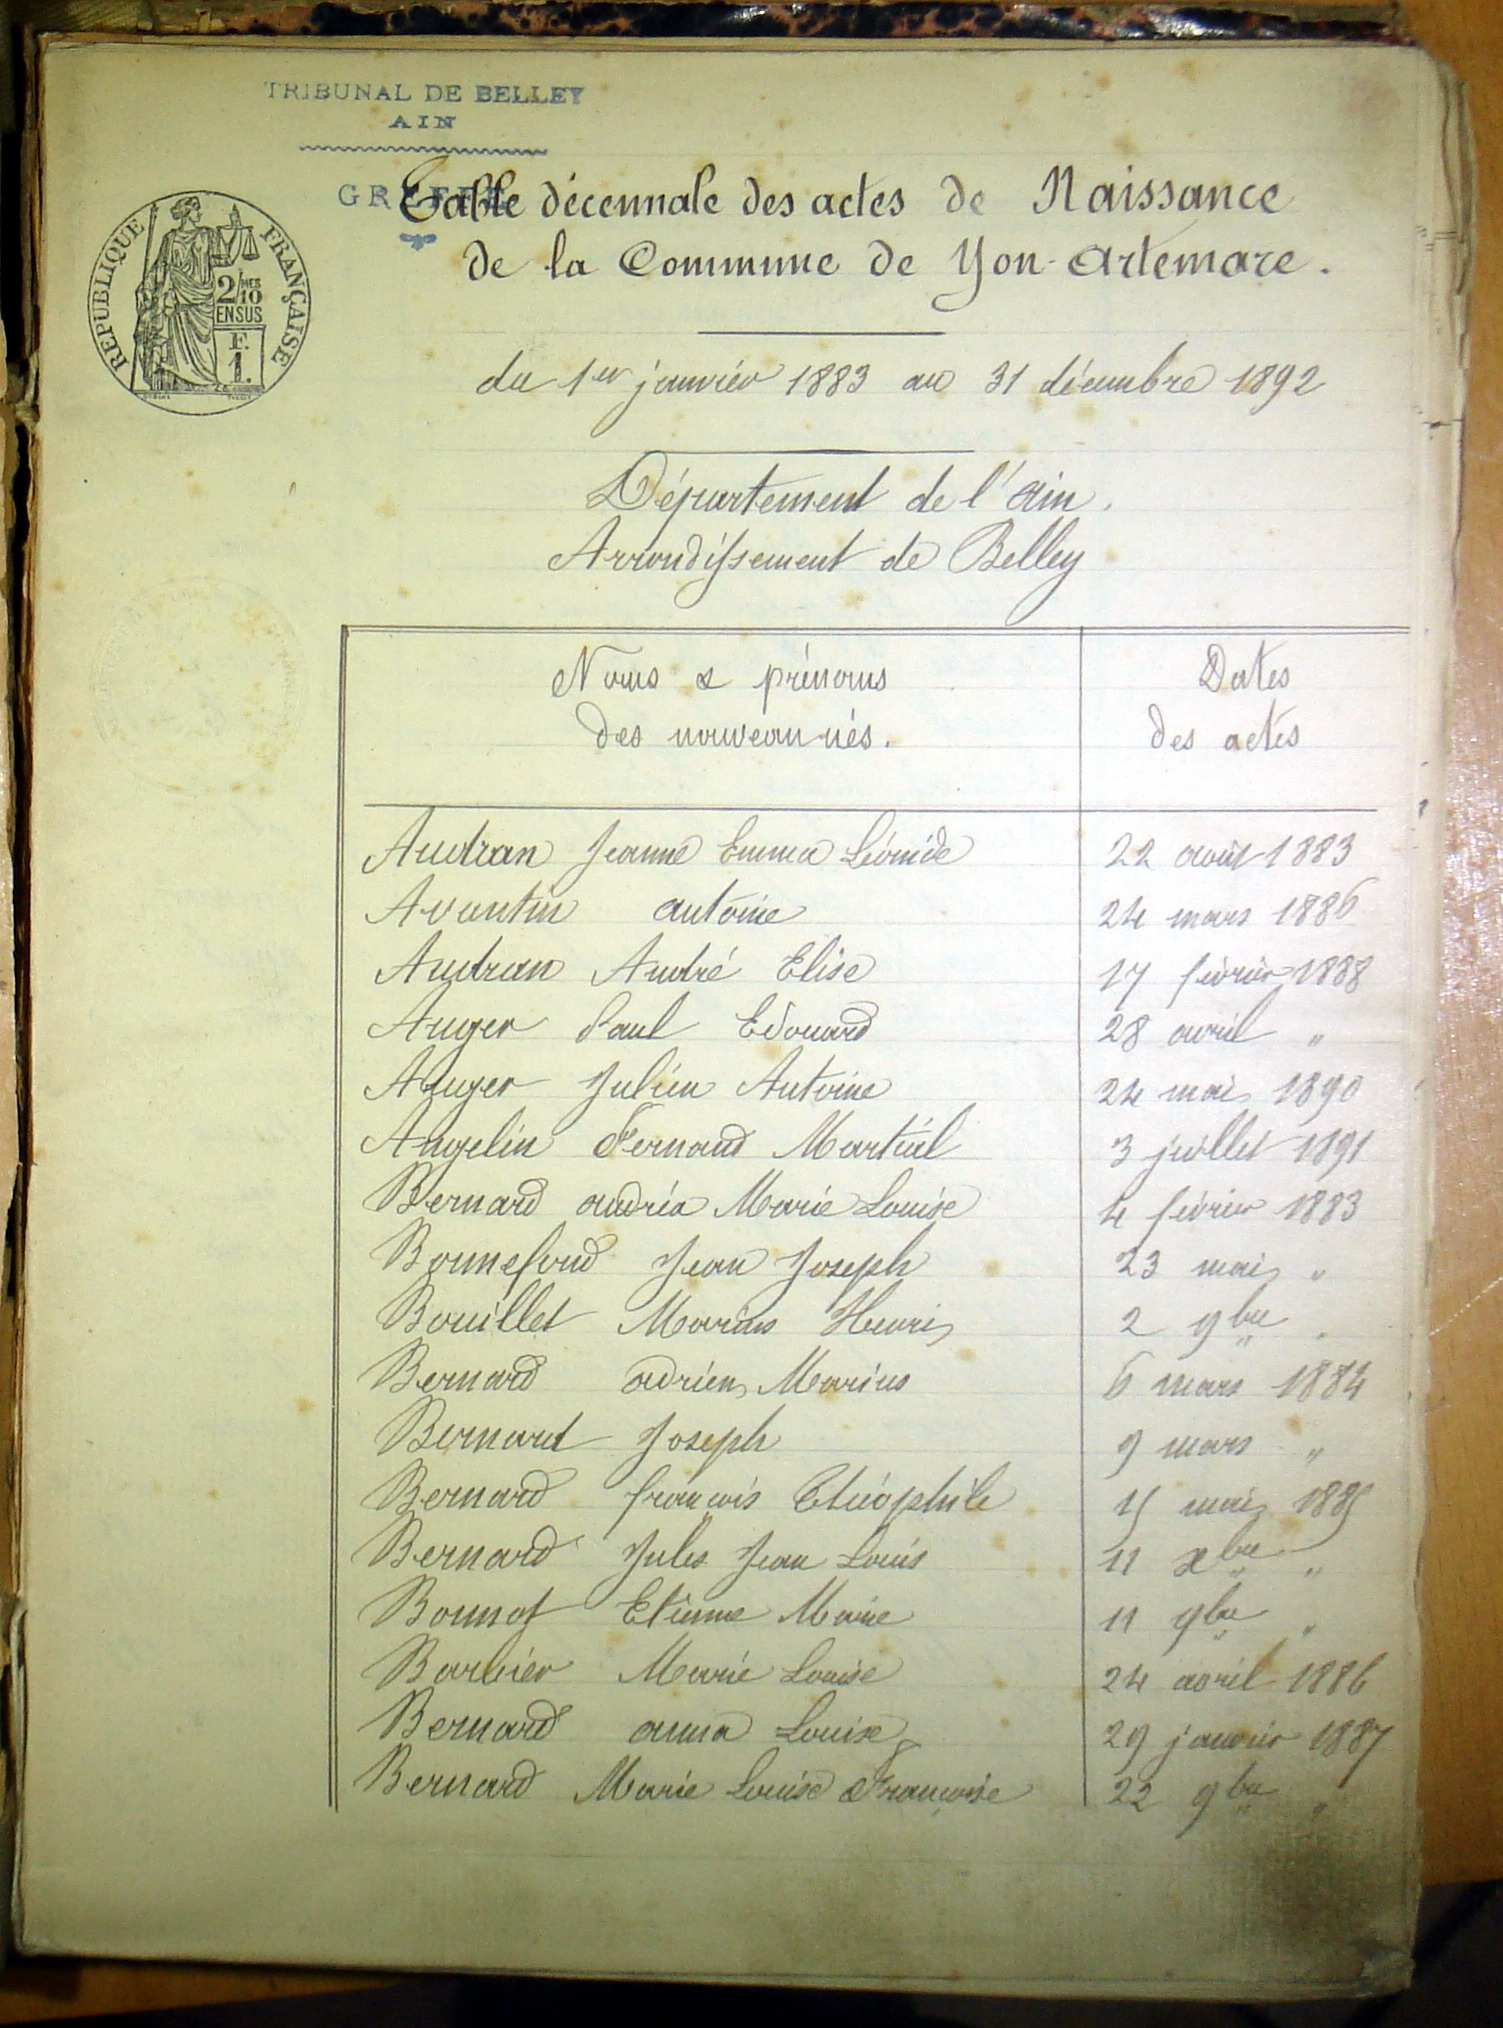 TRIBUNAL DE BELLEY
AIN
GREFFE
RÉPUBLIQUE FRANÇAISE
2/MES
10
EN SUS
F.
1.
Table décennale des actes de Naissance
de la Commune de Yon-Artemare.
du 1er janvier 1883 au 31 décembre 1892
Département de l'Ain.
Arrondissement de Belley
Noms & prénoms
des nouveau-nés.
Dates
des actes
Audran Jeanne Emma Léonide 22 août 1883
Avantin antoine 24 mars 1886
Audran André Elise 17 février 1888
Auger Paul Edouard 28 avril "
Auger Julien Antoine 24 mai 1890
Angelin Fernand Martial 3 juillet 1891
Bernard andréa Marie Louise 4 février 1883
Bonnefond Jean Joseph 23 mai "
Bouillet Marius Henri 2 9bre "
Bernard adrien Marius 6 mars 1884
Bernard Joseph 9 mars "
Bernard françois Théophile 15 mai 1885
Bernard Jules Jean Louis 11 xbre "
Bonnot Etienne Marie 11 9bre "
Barbier Marie Louise 24 avril 1886
Bernard anna Louise 29 janvier 1887
Bernard Marie Louise Françoise 22 9bre "